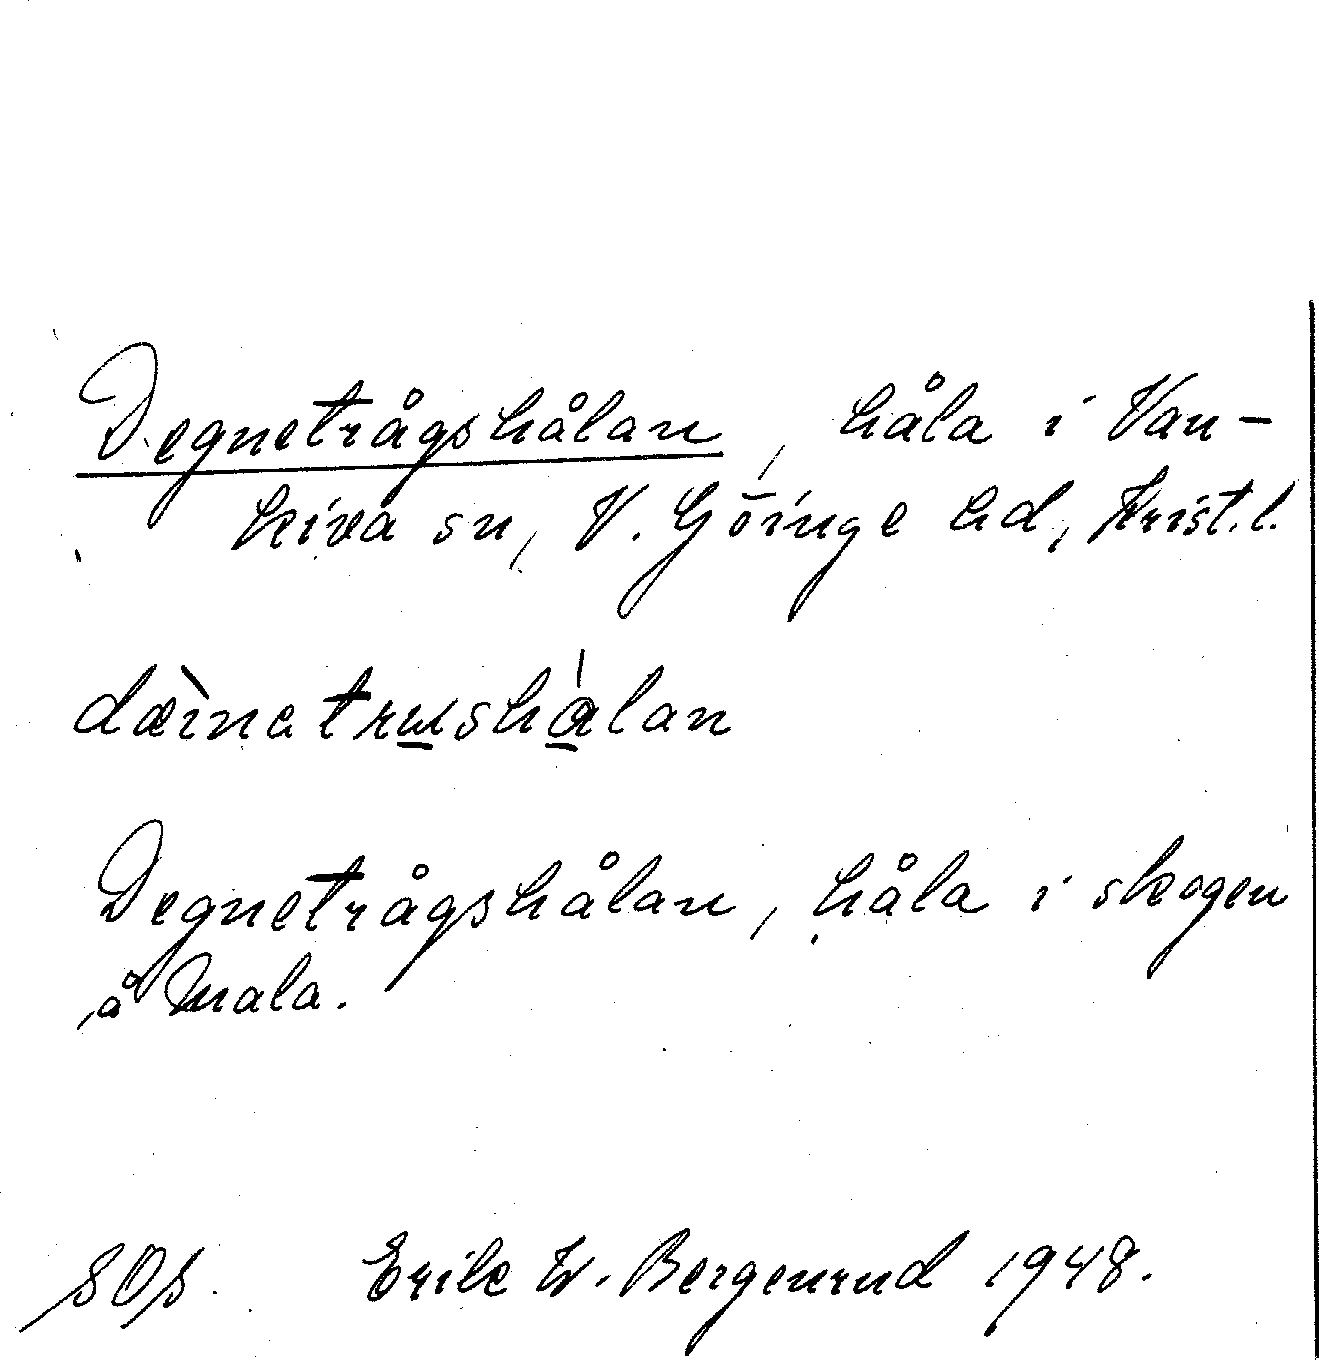 Degnetrågshålan, håla i Van-
kiva sn, V. Göinge hd, Krist. l.
Degnetrågshålan, håla i skogen
å Mala.
SOS. Erik W. Bergenrud 1948.